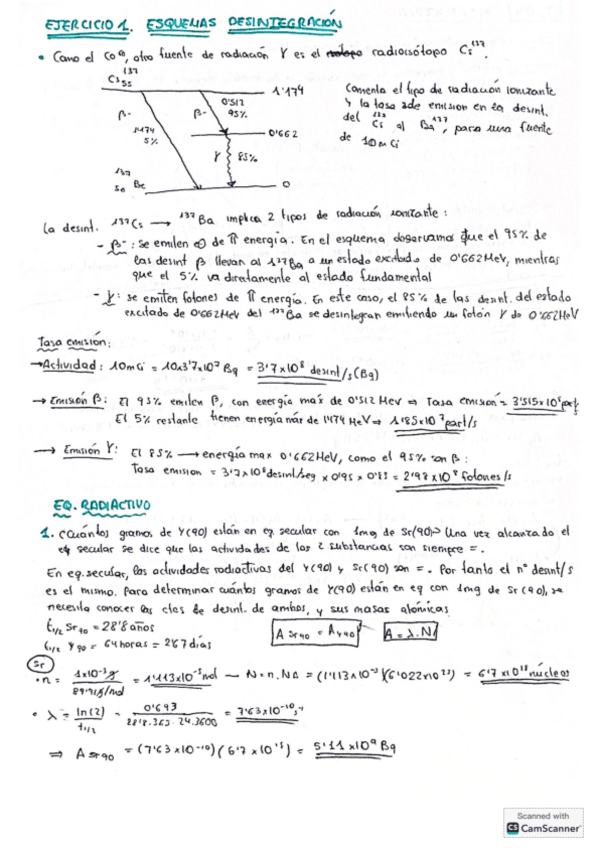 EJERCICIO 1. ESQUEMAS DESINTEGRACIÓN
• Como el Co⁶⁰, otra fuente de radiación γ es el radioisótopo Cs¹³⁷.
137
Cs55
1'174
0'512
95%
β-
β-
1474
5%
0'662
γ
85%
137
Ba
0
Comenta el tipo de radiación ionizante
y la tasa de emision en la desint.
del Cs¹³⁷ al Ba¹³⁷, para una fuente
de 10mCi
La desint. ¹³⁷Cs → ¹³⁷Ba implica 2 tipos de radiación ionizante:
- β-: se emiten e⊖ de ↑↑ energía. En el esquema observamos que el 95% de
las desint β llevan al ¹³⁷Ba a un estado excitado de 0'662MeV, mientras
que el 5% va diratamente al estado fundamental
- γ: se emiten fotones de ↑↑ energía. En este caso, el 85% de las desint. del estado
excitado de 0'662MeV del ¹³⁷Ba se desintegran emitiendo un fotón γ de 0'662MeV
Tasa emisión:
→ Actividad: 10mCi = 10x3'7x10⁷ Bq = 3'7x10⁸ desint/s (Bq)
→ Emisión β: El 95% emiten β, con energía max de 0'512 MeV ⇒ Tasa emisión = 3'515x10⁸ part/s
El 5% restante tienen energía máx de 1474 MeV ⇒ 1'85x10⁷ part/s
→ Emisión γ: El 85% → energía max 0'662MeV, como el 95% son β:
Tasa emision = 3'7x10⁸ desint/seg x 0'95 x 0'85 = 2'98x10⁸ fotones/s
EQ. RADIACTIVO
1. Cuántos gramos de Y(90) están en eq. secular con 1mg de Sr(90)? Una vez alcanzado el
eq secular se dice que las actividades de las 2 substancias son siempre =.
En eq. secular, las actividades radiactivas del Y(90) y Sr(90) son =. Por tanto el nº desint/s
es el mismo. Para determinar cuántos gramos de Y(90) están en eq con 1mg de Sr(90), se
necesita conocer las ctes de desint. de ambos, y sus masas atómicas
t1/2 Sr90 = 28'8 años
t1/2 Y90 = 64 horas = 2'67 días
A Sr90 = A Y90
A = λ·N
Sr
• n = 1x10⁻³g / 89'91g/mol = 1'113x10⁻⁵ mol — N = n.NA = (1'113x10⁻⁵)(6'022x10²³) = 6'7x10¹⁸ núcleos
• λ = ln(2) / t1/2 = 0'693 / 28'8.365.24.3600 = 7'63x10⁻¹⁰ s⁻¹
⇒ A Sr90 = (7'63x10⁻¹⁰)(6'7x10¹⁸) = 5'11x10⁹ Bq
Scanned with
CS CamScanner